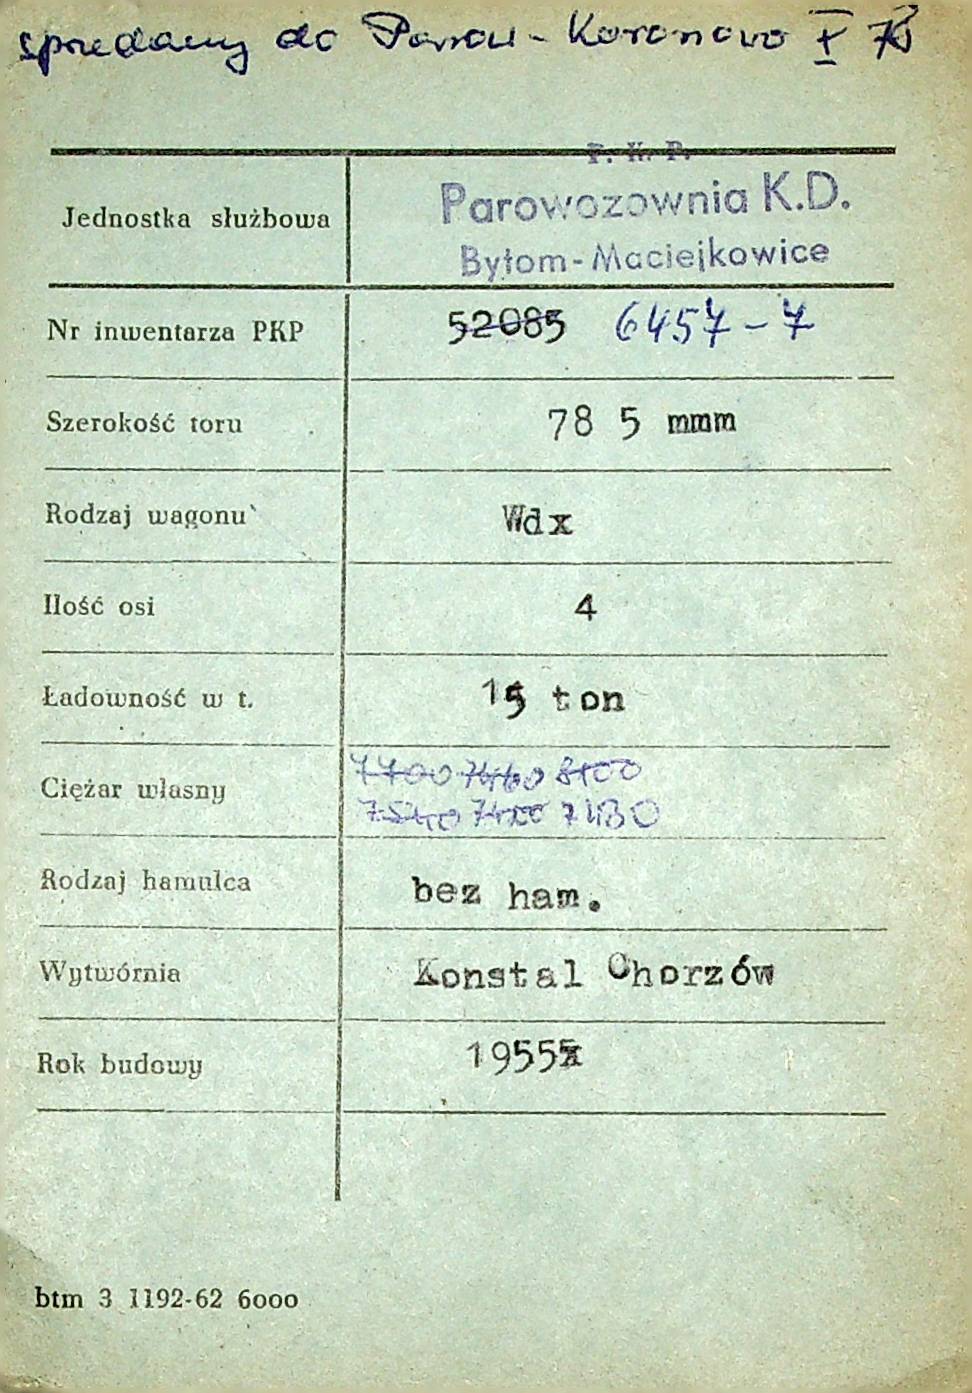 sprzedany do Koronowo X
P. K. P.
Jednostka służbowa Parowozownia K.D.
Bytom-Maciejkowice
Nr inwentarza PKP 52085 6457-7
Szerokość toru 78 5 mmm
Rodzaj wagonu Wdx
Ilość osi 4
Ładowność w t. 15 ton
Ciężar własny 7700 7460 8100
7540 7430
Rodzaj hamulca bez ham.
Wytwórnia Konstal Chorzów
Rok budowy 1955
btm 3 1192-62 6000